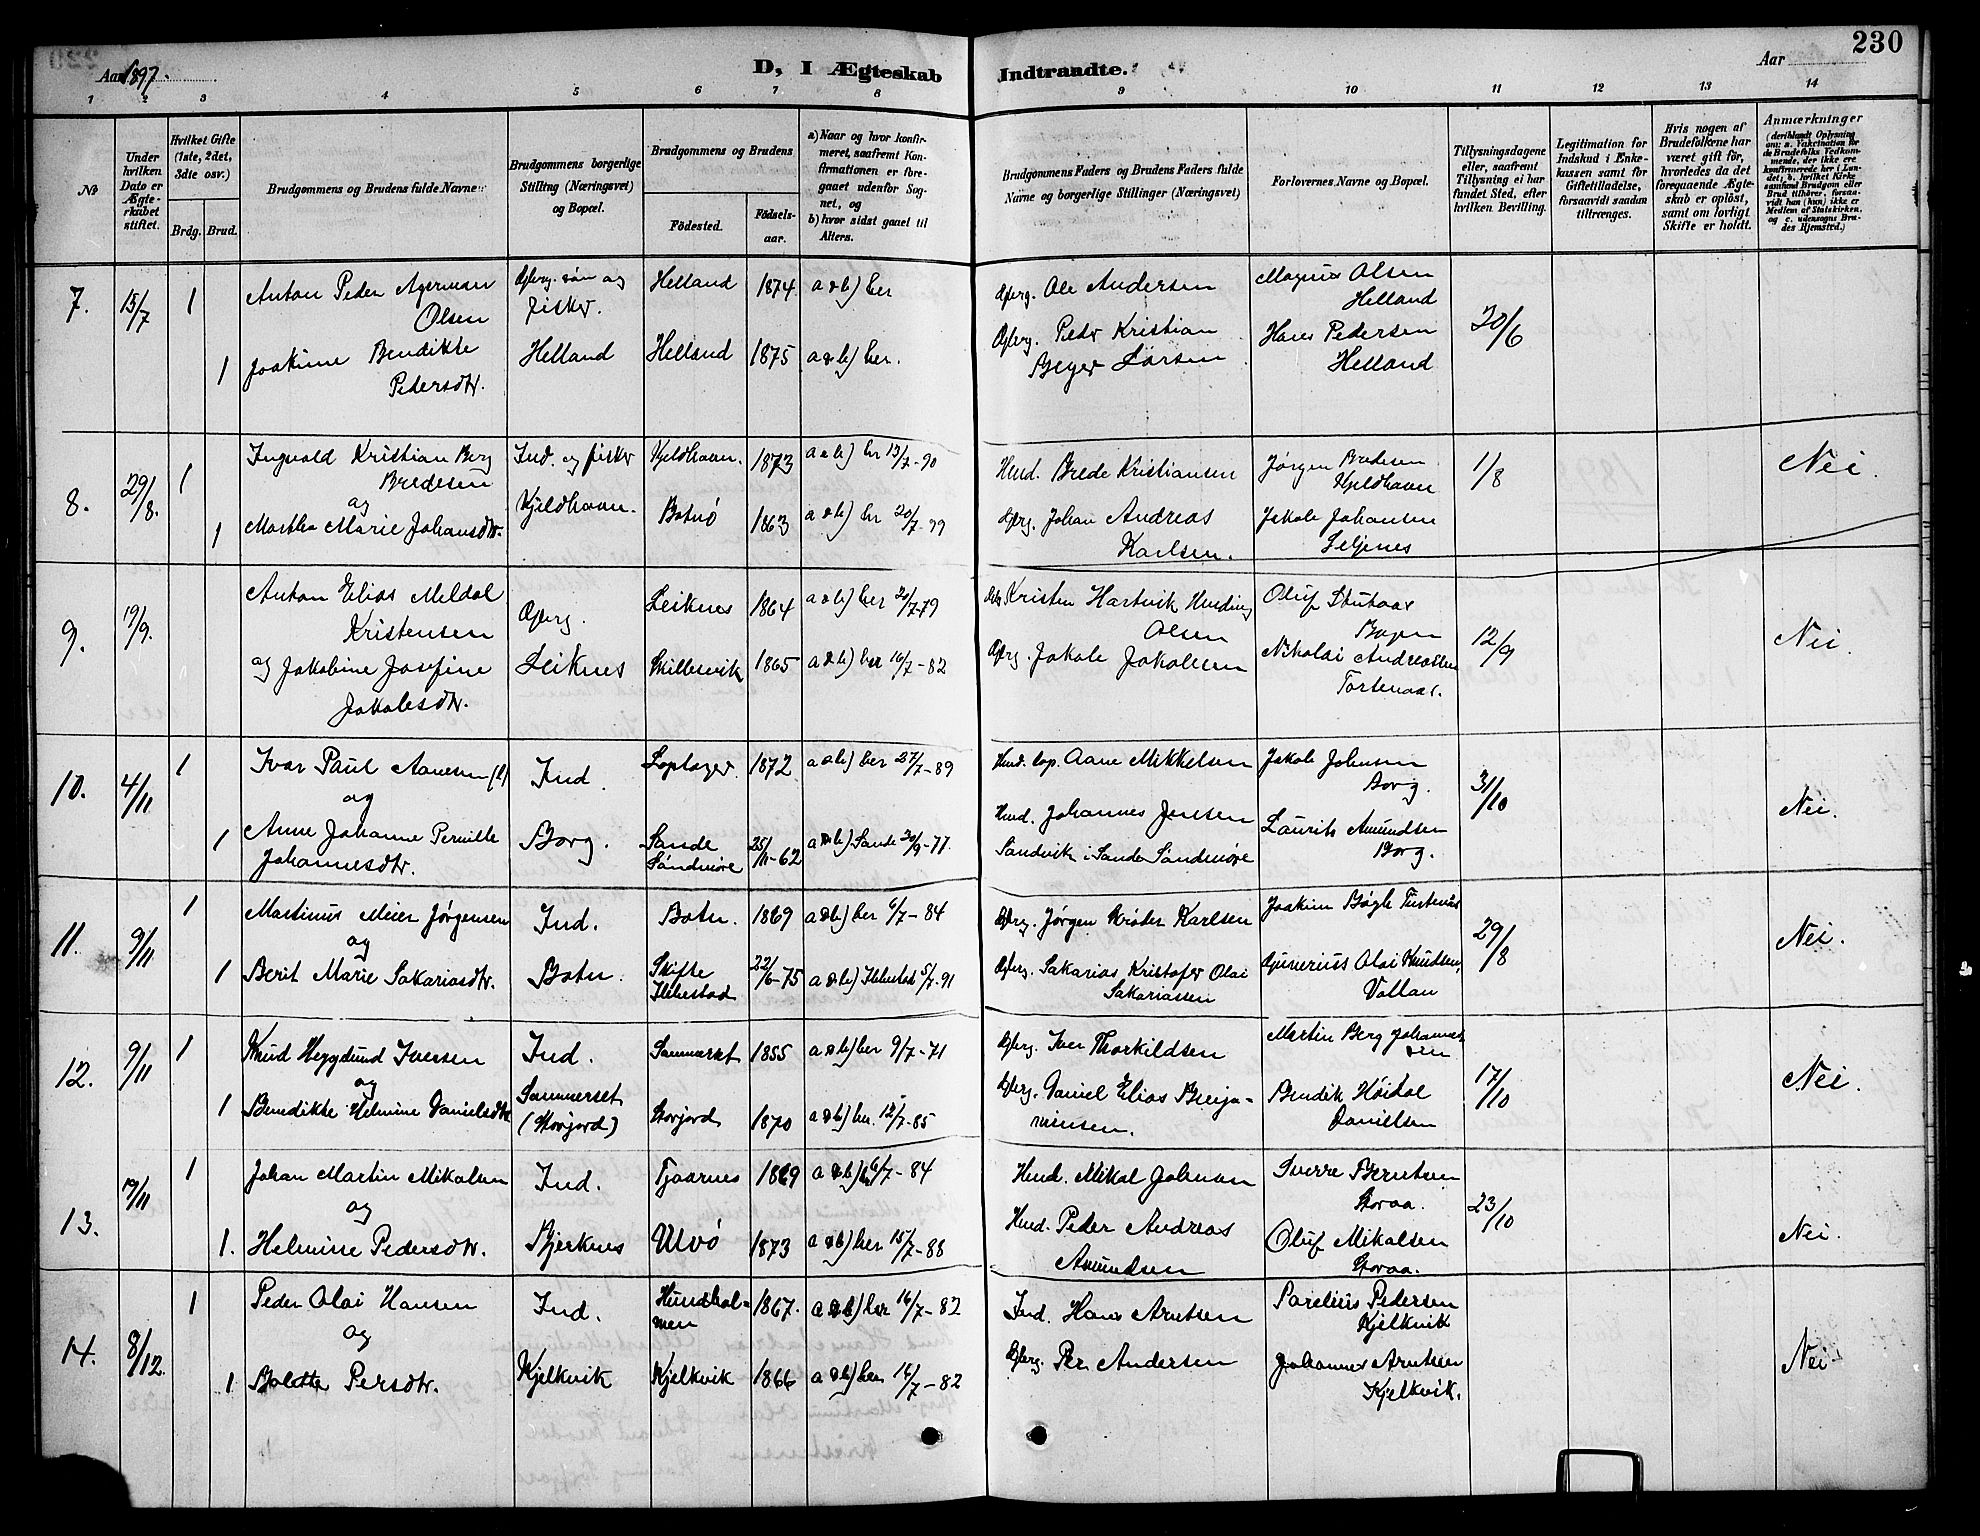 230
Aar 1897.
D, I Ægteskab Indtraadte.
Aar
1 2 3 4 5 6 7 8 9 10 11 12 13 14
No
Under hvilken Dato er Ægteskabet stiftet.
Hvilket Gifte (1ste, 2det, 3die osv.)
Brdg. Brud.
Brudgommens og Brudens fulde Navne.
Brudgommens borgerlige Stilling (Næringsvei) og Bopæl.
Brudgommens og Brudens
Fødested.
Fødselsaar.
a) Naar og hvor konfirmeret, saafremt Konfirmationen er foregaaet udenfor Sognet, og
b) hvor sidst gaaet til Alters.
Brudgommens Faders og Brudens Faders fulde Navne og borgerlige Stillinger (Næringsvei)
Forlovernes Navne og Bopæl.
Tillysningsdagene eller, saafremt Tillysning ei har fundet Sted, efter hvilken Bevilling.
Legitimation for Indskud i Enkekassen samt for Giftetilladelse, forsaavidt saadan tiltrænges.
Hvis nogen af Brudefolkene har været gift før, hvorledes da det foregaaende Ægteskab er opløst, samt om lovligt Skifte er holdt.
Anmærkninger
7. 15/7 1 Anton Peder Agerman Olsen
Gbrg. søn og fisker. Helland 1874 a & b) her
Gbrg. Ole Andersen
Magnus Olsen Helland
20/6
1 Joakime Bendikte Pedersdtr.
Helland Helland 1875 a & b) her.
Gbrg. Peder Kristian Beyer Larsen
Hans Pedersen Helland
8. 29/8. 1 Ingvald Kristian Berg Bredesen
og
Ind. og fisker Kjeldhavn. 1873 a & b) her 13/7-90
Hmd. Brede Kristiansen
Jørgen Bredesen Kjeldhavn
1/8
Nei.
1 Martha Marie Johansdtr.
Kjeldhavn. Botnø 1863 a & b) her 20/7-79
Gbrg. Johan Andreas Karlsen.
Jakob Johansen Seljenes
9. 19/9. Anton Elias Meldal Kristensen
Gbrg. Leiknes 1864 a & b) her 20/7-79
Kristen Hartvik Olsen
Oluf
12/9
Nei.
og Jakobine Josefine Jakobsdtr.
Leiknes Skillesvik 1865 a & b) her 16/7-82
Gbrg. Jakob Jakobsen
Nikolai Andreassen
10. 4/11 1 Ivar Paul Aanesen
og
Ind. 1872 a & b) her 27/7-89
Hmd. Aane Mikkelsen
Jakob Johnsen Borg.
31/10
Nei.
1 Anne Johanne Pernille Johannesdtr.
Borg. Sande Søndmøre 25/11-62 a & b) Sande 30/9-77.
Hmd. Johannes Jensen Sandvik i Sande Søndmøre
Laurits Amundsen Borg.
11. 9/11 1 Martinus Meier Jørgensen
og
Ind. Botn. 1869 a & b) her 6/7-84
Gbrg. Jørgen Krøder Karlsen
Joakim
29/8
Nei.
1 Berit Marie Sakariasdtr.
Botn. Skifte Ibbestad 22/6-75 a & b) Ibbestad 5/7-91
Gbrg. Sakarias Kristofer Olai Sakariassen
Gunerius Olai Knudsen, Vallan
12. 9/11 1 Knud Heggelund Iversen
og
Ind. Sommerset 1855 a & b) her 9/7-71
Gbrg. Iver Thorkildsen
Martin Berg Johannessen
17/10
Nei.
1 Bendikte Helmine Danielsdtr
Sommerset (Storjord) Storjord 1870 a & b) her. 12/7-85
Gbrg. Daniel Elias Benjaminsen.
Bendik Høidal Danielsen
13. 19/11 1 Johan Martin Mikalsen
og
Ind. Tjaarnes 1869 a & b) 6/7-84
Hmd. Mikal Johnsen
Sverre Berntsen Storaa.
23/10
Nei.
1. Helmine Pedersdtr.
Bjerknes Ulvø 1873 a & b) her 15/7-88
Hmd. Peder Andreas Amundsen
Oluf Mikalsen Storaa.
14. 8/12. 1 Peder Olai Hansen
og
Ind. Hundholmen 1867. a & b) her 16/7-82
Ind. Hans Arntsen
Parelius Pedersen Kjelkvik
Nei
1 Bolette Persdtr.
Kjelkvik Kjelkvik 1866 a & b) her 16/7-82
Gbrg. Per Andersen
Johannes Arntsen Kjelkvik.